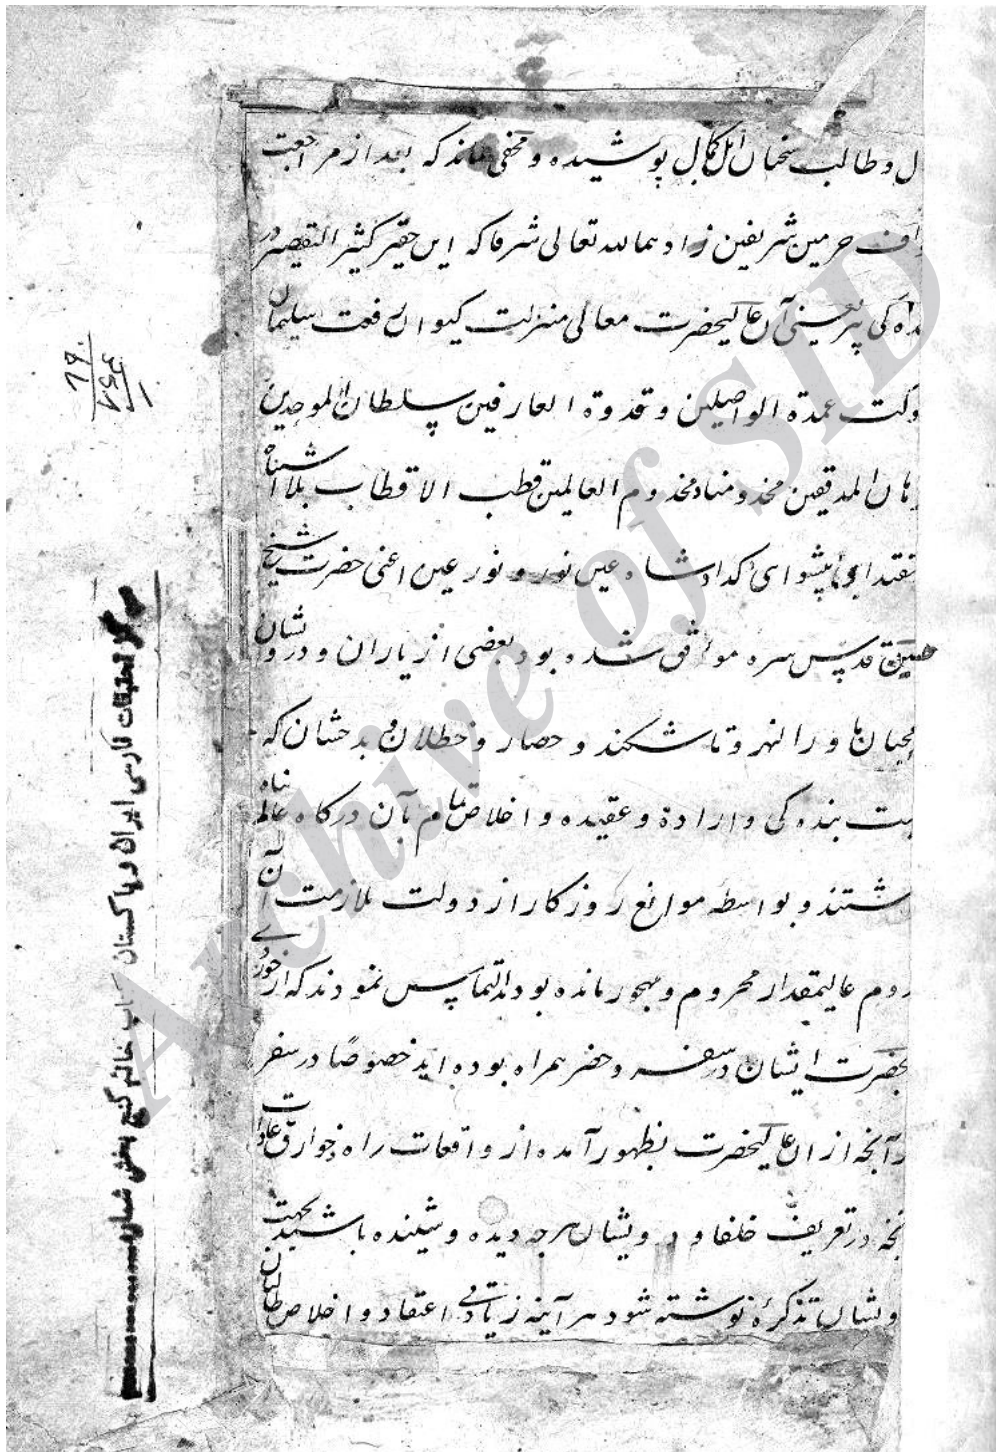 ل و طالب سخنان اهل کمال پوشیده و مخفی نماند که بعد از مراجعت
اف حرمین شریفین زادهما لله تعالی شرفا که این حقیر کثیر التقصیر در
آن عالیحضرت معالی منزلت کیوان رفعت سلیمان
عمدة الواصلین و قدوة العارفین سلطان الموحدین
هان المدققین مخدومنا و مخدوم العالمین قطب الاقطاب بلا اشتباه
پیشوای گدا و شاه عین نور و نور عین اعنی حضرت شیخ
حسین قدس سره موفق شده بود بعضی از یاران و درویشان
ماورا لنهر و تاشکند و حصار و خطلان و بدخشان که
بت بنده کی و ارادة و عقیده و اخلاص تمام بآن درکاه عالم پناه
شتند و بواسطه موانع روزکار از دولت ملازمت آن
دوم عالیمقدار محروم و مهجور مانده بودند التماس نمودند که از خوردی
بحضرت ایشان در سفر و حضر همراه بوده اید خصوصًا در سفر
و آنچه ازان عالیحضرت بظهور آمده از واقعات راه و خوارق عادات
نچه در تعریف خلفا و درویشان هرچه دیده و شنیده باشید بجهت
ویشان تذکرۀ نوشته شود هر آینه زیادتی اعتقاد و اخلاص طالبان
مرکز تحقیقات فارسی ایران و پاکستان کتاب خانه گنج بخش شماره
Archive of SID